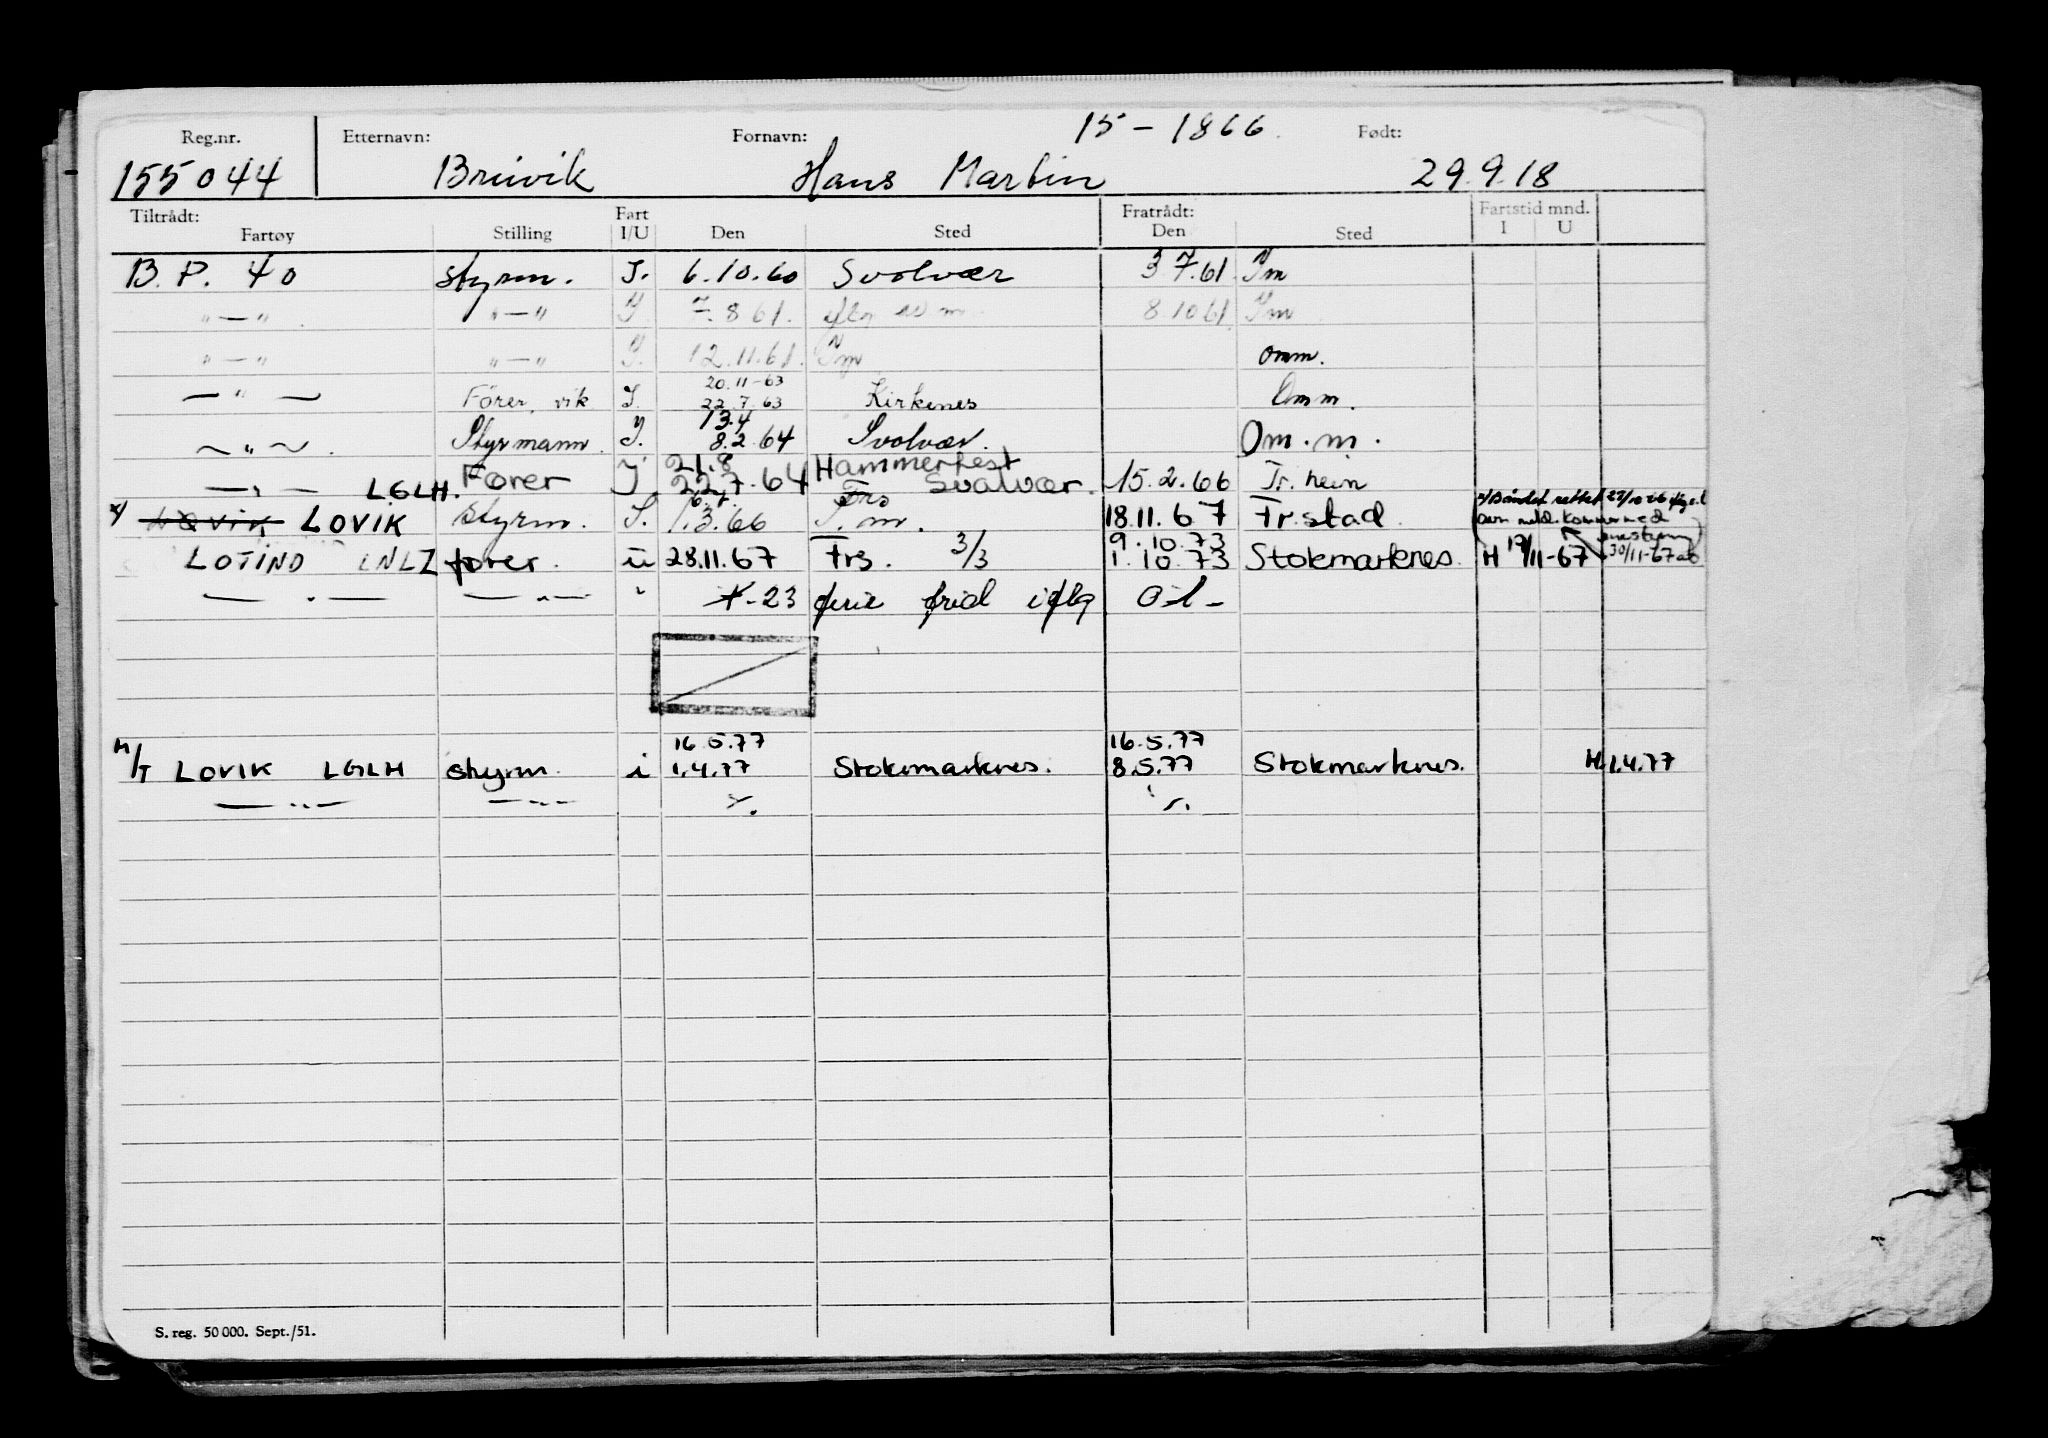 15 - 1866
Reg.nr. Etternavn: Fornavn: Født:
155044 Breivik Hans Martin 29.9.18
Tiltrådt: Fart Fratrådt: Fartstid mnd.
Fartøy Stilling I/U Den Sted Den Sted I U
B. P. 40 styrm. I. 6.10.60 Svolvær 3 7.61 Im
" — " " — " I 7.8 61. 8 10 61. Im
" — " " — " I. 12.11.61. Im omm.
20.11-63
— " — Förer, vik I. 22.7.63 Kirkenes Omm.
13.4
— " — . Styrmann I. 8.2.64 Svolvær. Om.m.
21.8 Hammerfest
— " — LGLH. Fører I 22.7.64 Svolvær. 15.2.66 Tr.heim
x/ LOVIK LOVIK styrm. I. 1.3.66 T.m. 18.11.67 Fr.stad
9.10.73
LOTIND LNLZ fører. u 28.11.67 Frs. 3/3 1.10.73 Stokmarknes. H 17/11-67 30/11-67
— " — — " — " -23 ferie frid iflg
16.5.77 16.5.77
M/T LOVIK LGLH styrm. i 1.4.77 Stokmarknes. 8.5.77 Stokmarknes. H.1.4.77
— " — — " —
S. reg. 50 000. Sept./51.